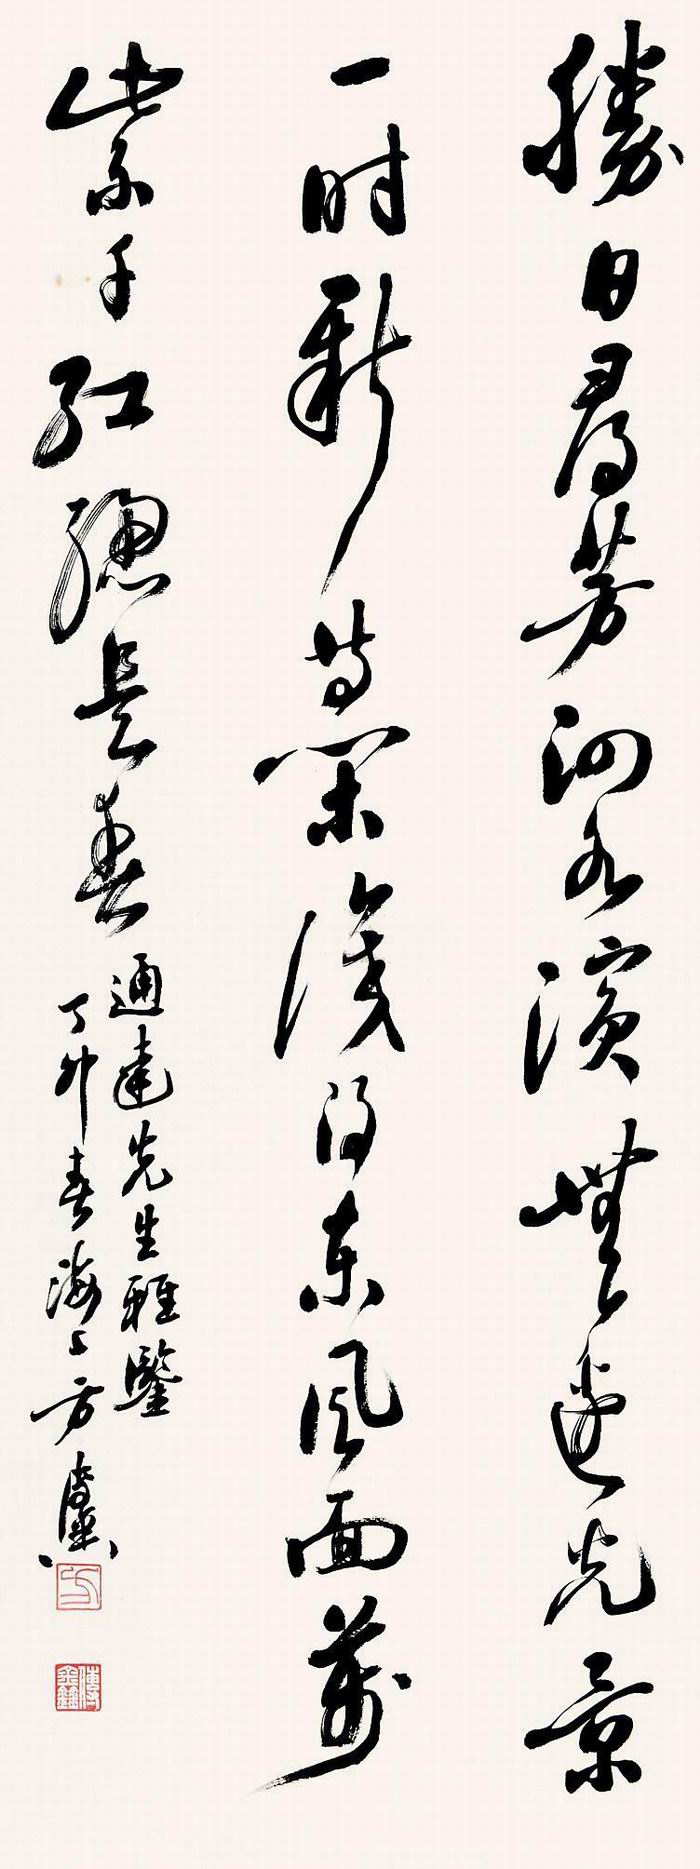 勝日尋芳泗水濱無邊光景
一時新等閒識得東風面萬
紫千紅總是春
通達先生雅鑒
丁卯春海上方傳鑫
方
傳鑫